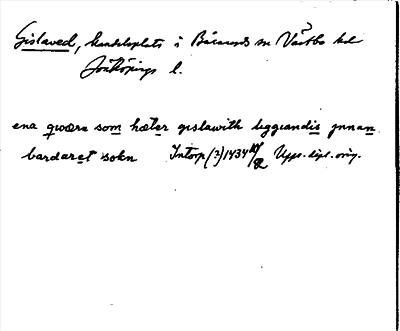 Gislaved, handelsplats i Båraryds sn Västbo hd
Jönköpings l.
ena qwærn som hæter gislawith liggiandis jnnan
bardaret sokn Intorp (?) 1434 10/82 Upps. dipl. orig.